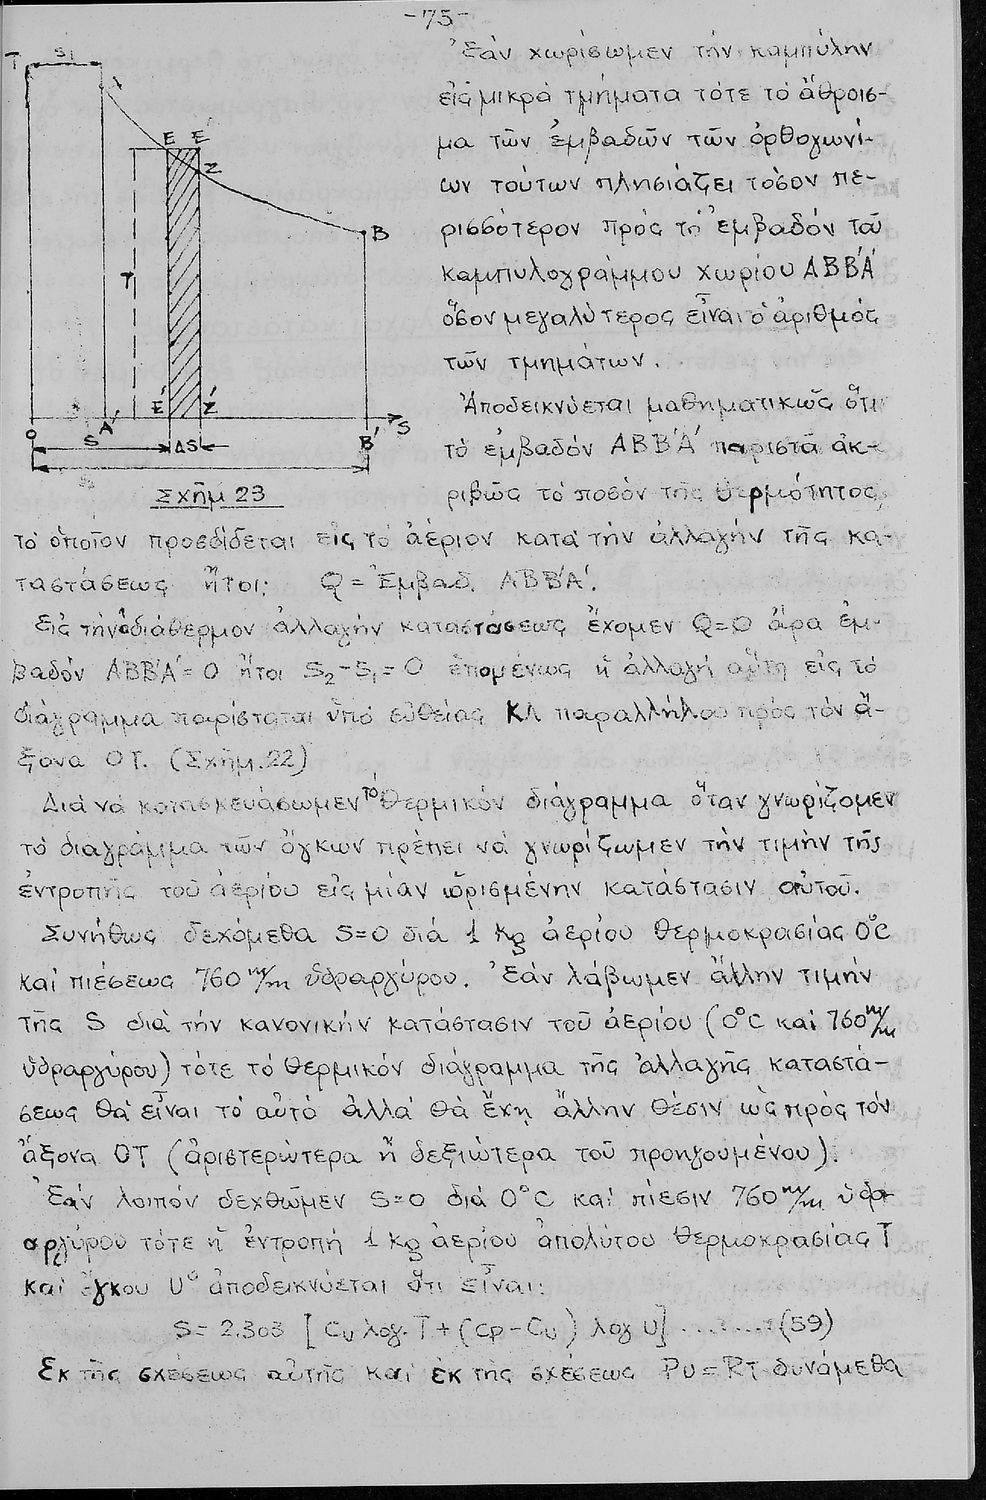 -75-
Ἐάν χωρίσωμεν τήν καμπύλην
εἰς μικρά τμήματα τότε τό ἄθροισ-
μα τῶν ἐμβαδῶν τῶν ὀρθογωνί-
ων τούτων πλησιάζει τόσον πε-
ρισσότερον πρός τό ἐμβαδόν τοῦ
καμπυλογράμμου χωρίου ΑΒΒ΄Α΄
ὅσον μεγαλύτερος εἶναι ὁ ἀριθμός
τῶν τμημάτων.
Ἀποδεικνύεται μαθηματικῶς ὅτι
τό ἐμβαδόν ΑΒΒ΄Α΄ παριστᾶ ἀκ-
ριβῶς τό ποσόν τῆς θερμότητος,
T S₁
A
E E΄
Z
B
T
E΄ Z΄
O A΄ B΄ S
S ΔS
Σχῆμ 23
τό ὁποῖον προσδίδεται εἰς τό ἀέριον κατά τήν ἀλλαγήν τῆς κα-
ταστάσεως ἤτοι: Q = Ἐμβαδ. ΑΒΒ΄Α΄.
Εἰς τήν ἀδιάθερμον ἀλλαγήν καταστάσεως ἔχομεν Q=0 ἄρα ἐμ-
βαδόν ΑΒΒ΄Α΄=0 ἤτοι S₂-S₁=0 ἑπομένως ἡ ἀλλαγή αὕτη εἰς τό
διάγραμμα παρίσταται ὑπό εὐθείας ΚΛ παραλλήλου πρός τόν ἄ-
ξονα ΟΤ. (Σχῆμ.22)
Διά νά κατασκευάσωμεν τό θερμικόν διάγραμμα ὅταν γνωρίζομεν
τό διαγράμμα τῶν ὄγκων πρέπει νά γνωρίζωμεν τήν τιμήν τῆς
ἐντροπῆς τοῦ ἀερίου εἰς μίαν ὡρισμένην κατάστασιν αὐτοῦ.
Συνήθως δεχόμεθα S=0 διά 1 kg ἀερίου θερμοκρασίας 0°C
καί πιέσεως 760 m/m ὑδραργύρου. Ἐάν λάβωμεν ἄλλην τιμήν
τῆς S διά τήν κανονικήν κατάστασιν τοῦ ἀερίου (0°C καί 760 m/m
ὑδραργύρου) τότε τό θερμικόν διάγραμμα τῆς ἀλλαγῆς καταστά-
σεως θά εἶναι τό αὐτό ἀλλά θά ἔχῃ ἄλλην θέσιν ὡς πρός τόν
ἄξονα ΟΤ (ἀριστερώτερα ἤ δεξιώτερα τοῦ προηγουμένου).
Ἐάν λοιπόν δεχθῶμεν S=0 διά 0°C καί πίεσιν 760 m/m ὑδρ
αργύρου τότε ἡ ἐντροπή 1 kg ἀερίου ἀπολύτου θερμοκρασίας T
καί ὄγκου U ἀποδεικνύεται ὅτι εἶναι:
S= 2,303 [Cυ λογ. T + (Cp-Cυ) λογ U] ........(59)
Ἐκ τῆς σχέσεως αὐτῆς καί ἐκ τῆς σχέσεως Pυ=RT δυνάμεθα